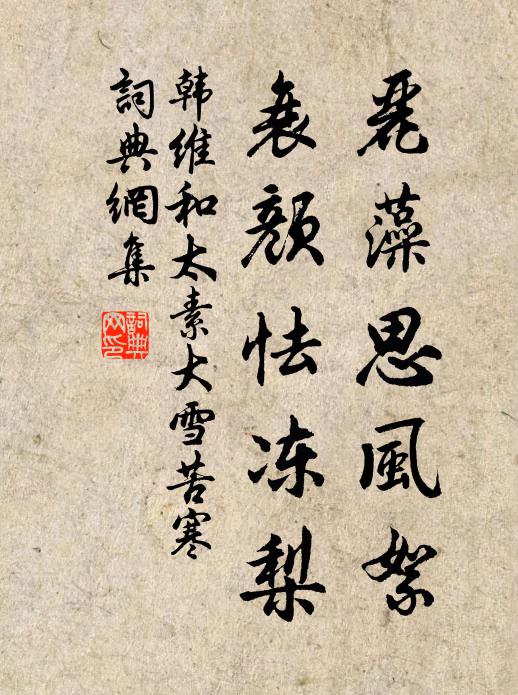 麗藻思風絮
衰顔怯冻梨
韩维和太素大雪苦寒
詞典網集
詞典网印